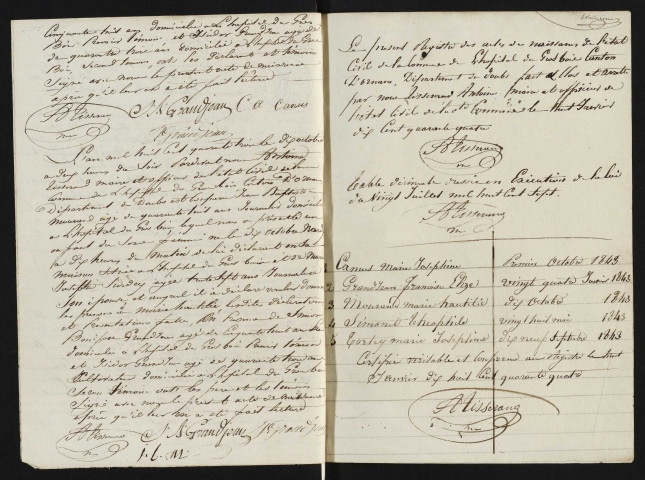 Cinquante huit ans domicilié à L'hopital du Gros
Bois Premier témoin et Isidor Grandjean agé de
de quarante trois ans domicilié à L'hopital du Gros
Bois Second témoin, ont les Déclarant et témoin
Signé avec nous le présent acte de naissance
après qu'il leur en a été fait lecture
A Tisserand J A Grandjean C A Camus
I Grandjean
L'an mil huit cent quarante trois le dix octobre
à deux heures du Soir Pardevant nous Antoine
tisserand maire et officier de l'etat Civil de la
Commune de L'hopital du Gros bois Canton D'Ornans
Département du Doubs est comparu Jean Baptiste
Mourand agé de quarante huit ans Journalier domicilié
à L'hopital du Gros bois lequel nous a présenté un
enfant du Sexe féminin né le dix Octobre
à dix heures du Matin de lui déclarant en sa
maison Sise à L'hopital du Gros bois et de
Joseph agée trente Sept ans Journalière
Son épouse, et auquel il a déclaré vouloir donner
les prénoms de marie hautilie lesdites déclaration
et présentation faite En présence de Simon
Boniface Grandjean agé de Cinquante huit ans
domicilié à L'hopital du Gros bois Premier témoin
et Isidor Grandjean agé de quarante trois ans
Cultivateur domicilié à L'hopital du Gros bois
Second témoin ont le père et les témoins
Signé avec nous le présent acte de naissance
après qu'il leur en a été fait lecture
A Tisserand J A Grandjean I Grandjean
Le present Registre des actes de naissance de l'etat
Civil de la Commune de L'hopital du Gros bois Canton
D'ornans, Département du doubs a été Clos et arrêté
par nous Tisserand Antoine maire et officier de
l'etat Civil de la dte Commune le huit Janvier
dix huit Cent quarante quatre
A Tisserand
Table décennale dressée en Exécution de la Loi
du Vingt Juillet mil huit Cent Sept.
A Tisserand
1 Camus Marie Josephine Premier Octobre 1843
2 Grandjean Françoise Elize vingt quatre Janvier 1843
3 Mourand marie hautilie dix Octobre 1843
4 Simonet theophile vingt huit mai 1843
5 Torchy marie Josephine dix neuf Septembre 1843
Certifié véritable et Conforme au Registre le huit
Janvier dix huit Cent quarante quatre
A Tisserand